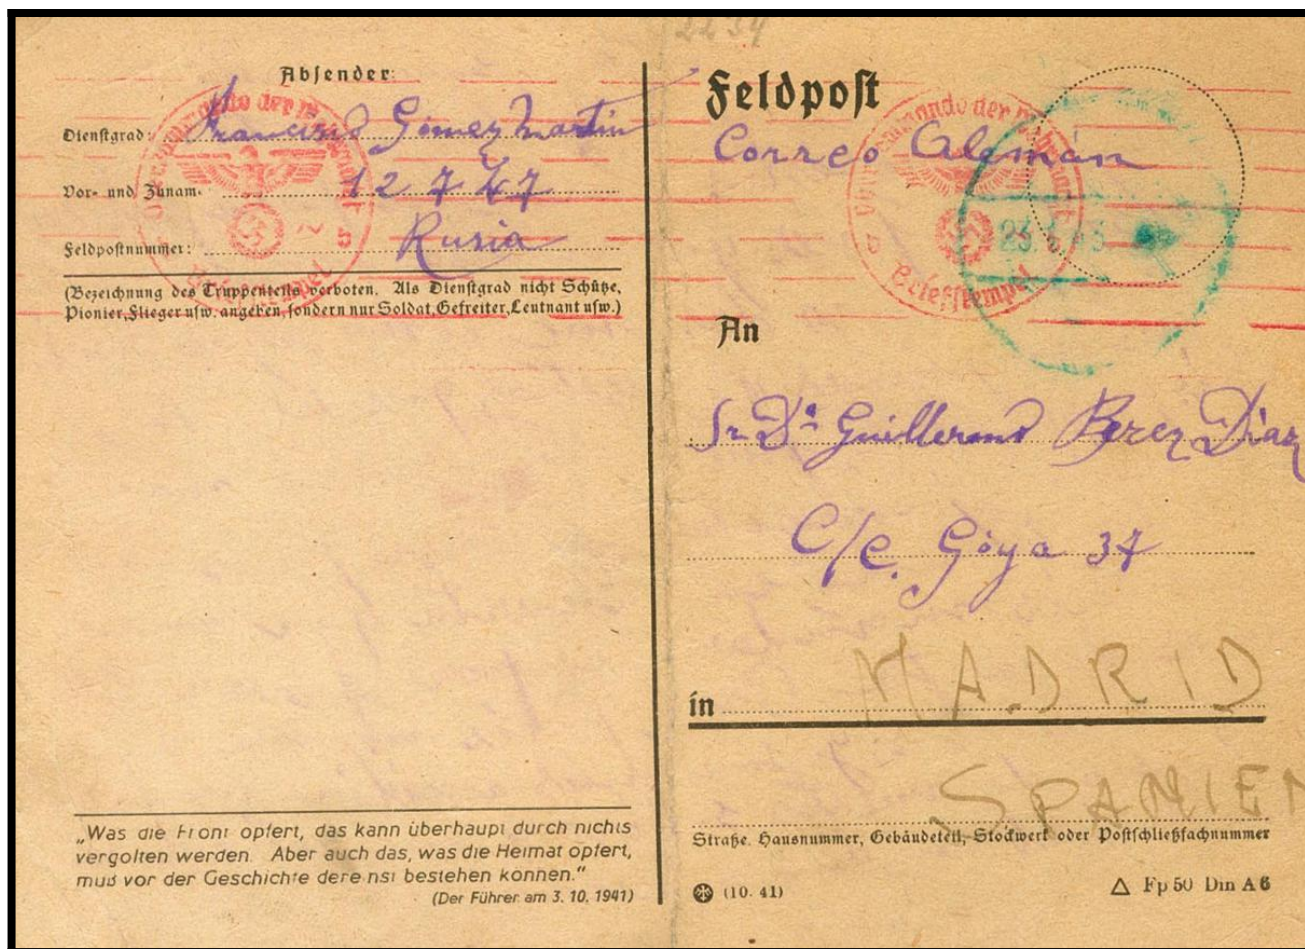 2234
Absender:
Dienstgrad: Francisco Gómez Martin
Vor- und Zunam- 12747
Feldpostnummer: Rusia
(Bezeichnung des Truppenteils verboten. Als Dienstgrad nicht Schütze,
Pionier, Flieger usw. angeben, sondern nur Soldat, Gefreiter, Leutnant usw.)
Oberkommando der Wehrmacht
Briefstempel
„Was die Front opfert, das kann überhaupt durch nichts
vergolten werden. Aber auch das, was die Heimat opfert,
muß vor der Geschichte dereinst bestehen können.“
(Der Führer am 3. 10. 1941)
Feldpost
Correo Alemán
Oberkommando der Wehrmacht
b
Briefstempel
An
Sr Dn Guillermo Perez Diaz
C/e. Goya 37
in MADRID
SPANIEN
Straße, Hausnummer, Gebäudeteil, Stockwerk oder Postschließfachnummer
(10. 41)
△ Fp 50 Din A 6